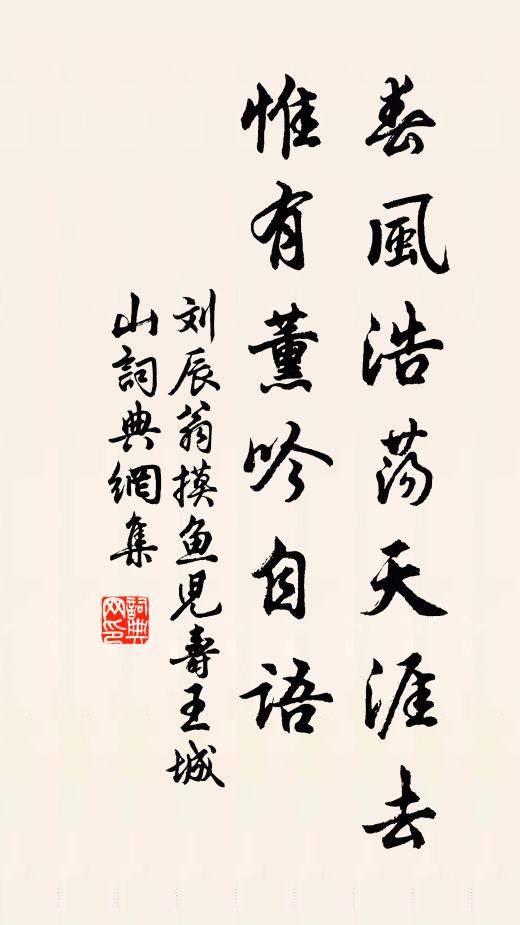 春風浩荡天涯去
惟有薰吟自语
刘辰翁摸鱼児壽王城
山詞典網集
詞典网印